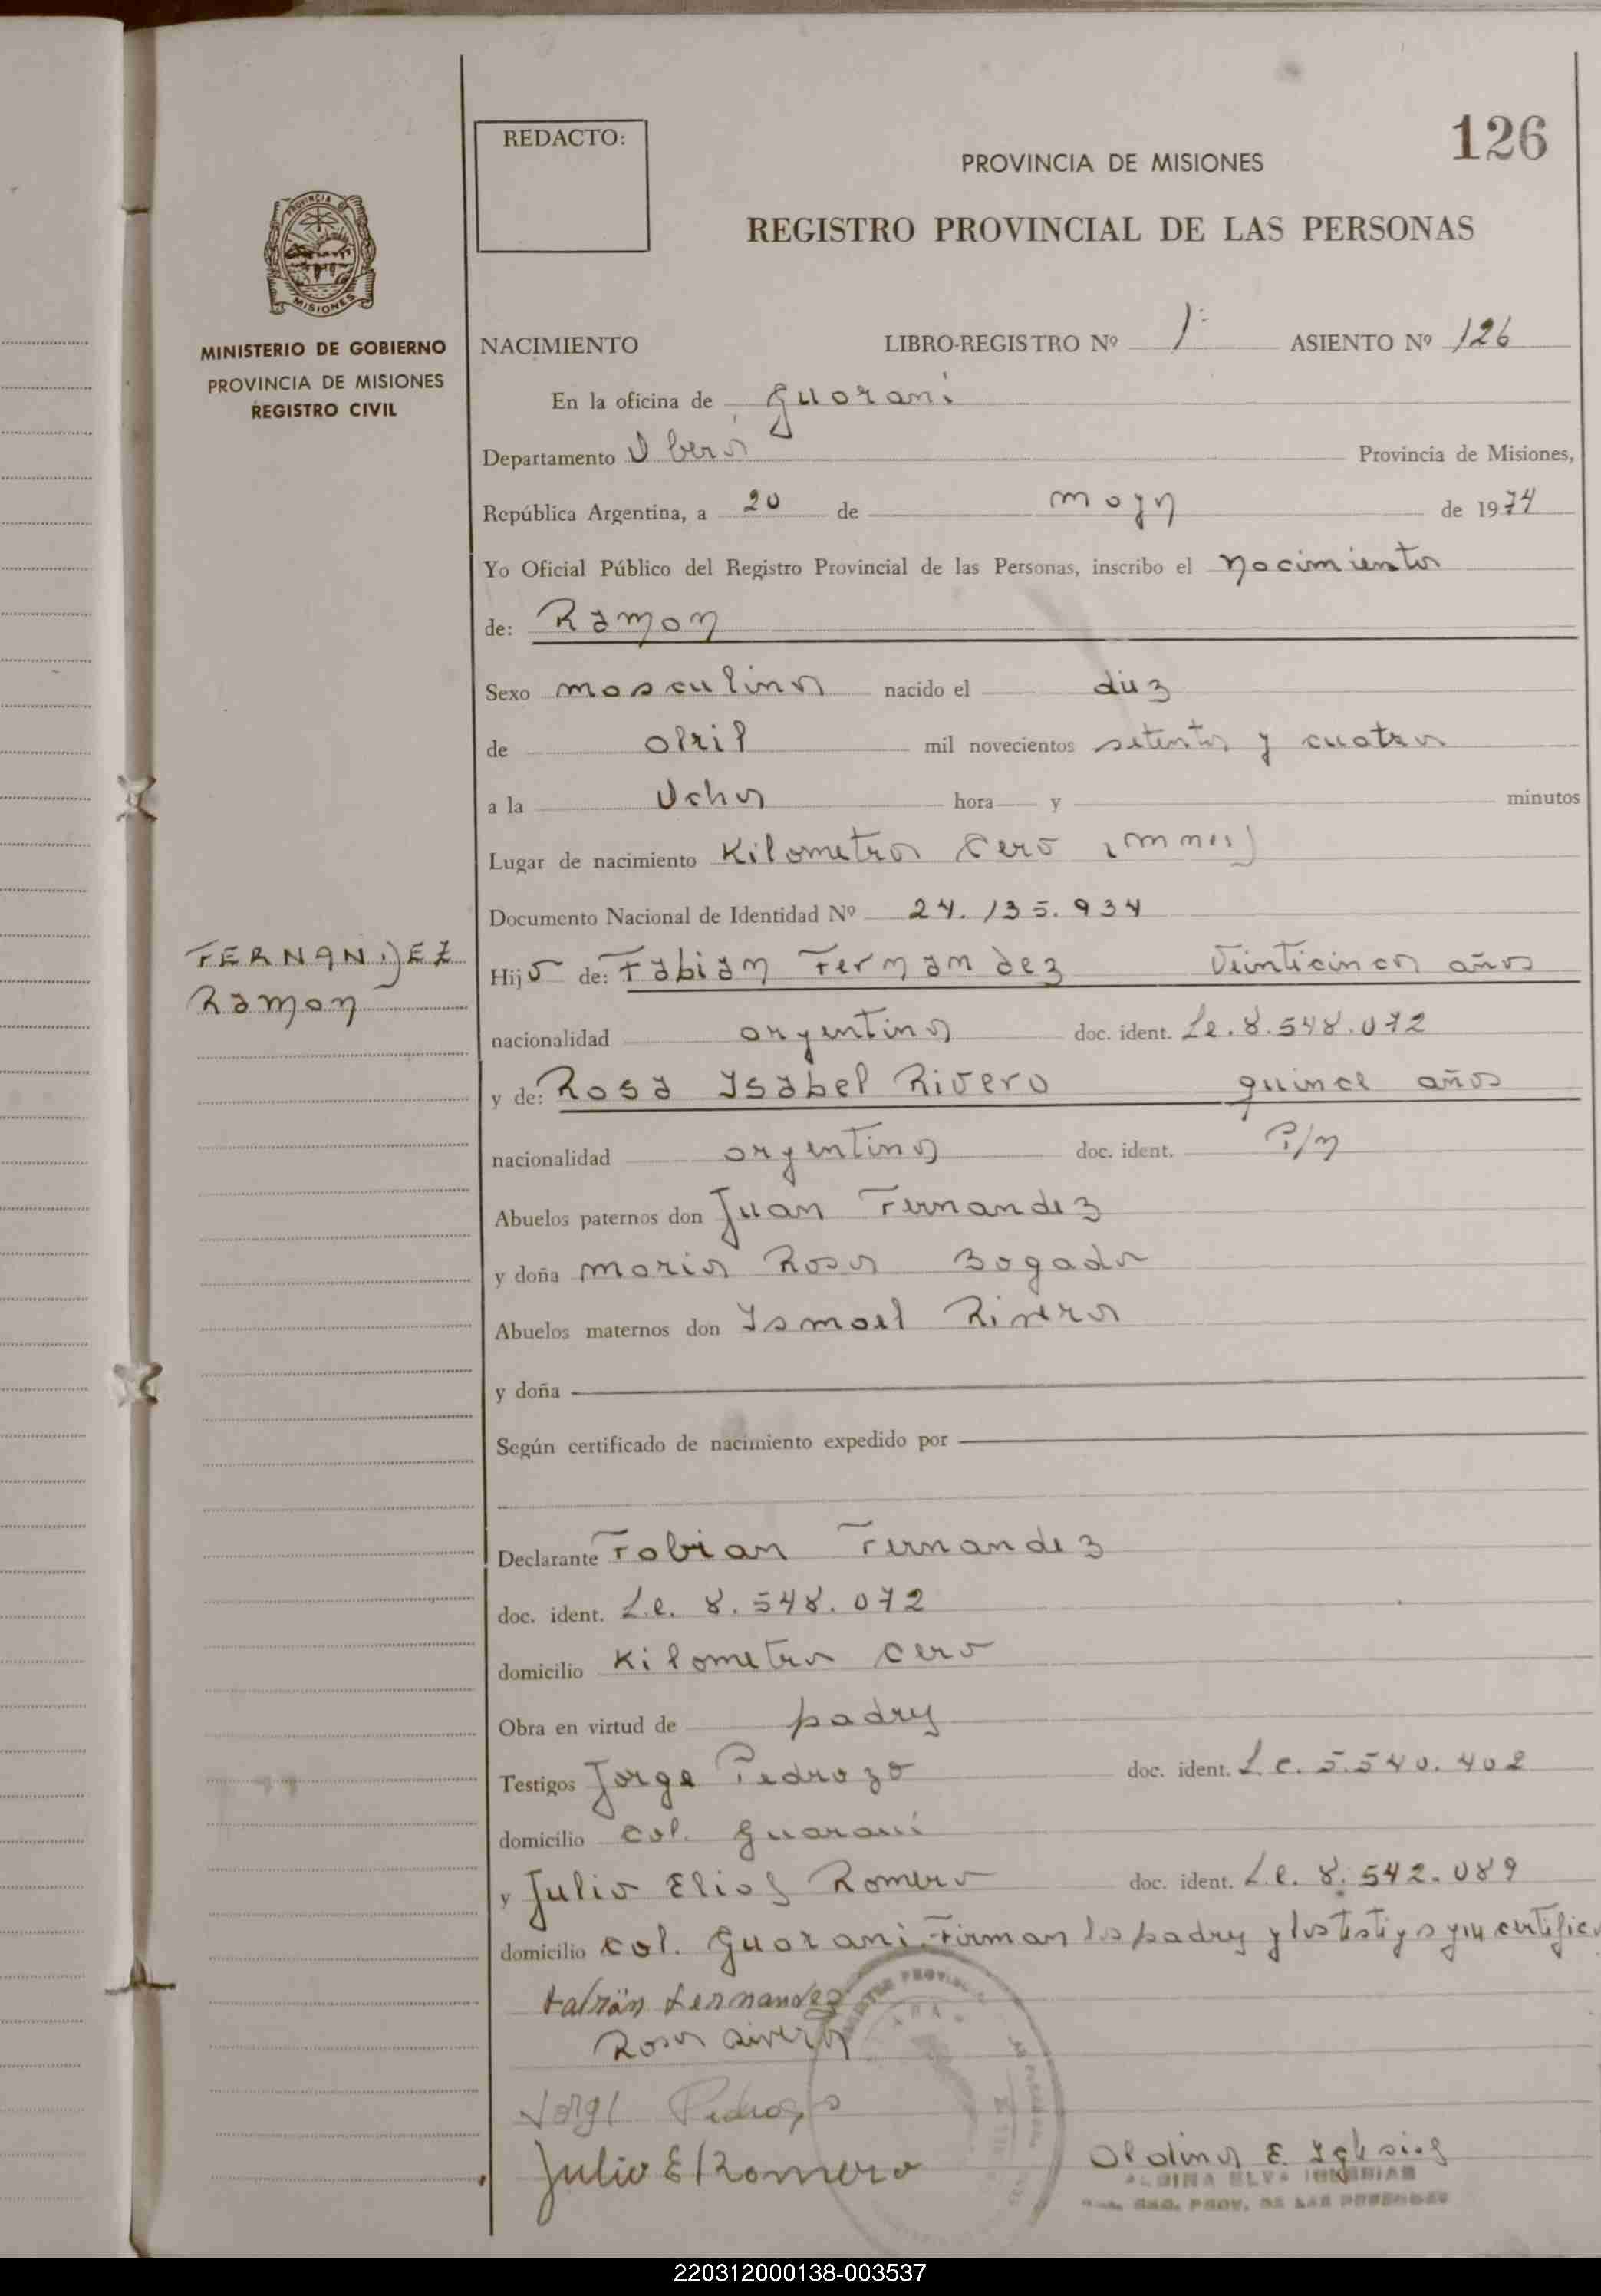 126
REDACTO:
PROVINCIA DE MISIONES
REGISTRO PROVINCIAL DE LAS PERSONAS
PROVINCIA DE
MISIONES
MINISTERIO DE GOBIERNO
PROVINCIA DE MISIONES
REGISTRO CIVIL
NACIMIENTO LIBRO-REGISTRO Nº 1º ASIENTO Nº 126
En la oficina de Guarani
Departamento Obera Provincia de Misiones,
República Argentina, a 20 de mayo de 1974
Yo Oficial Público del Registro Provincial de las Personas, inscribo el nacimiento
de: Ramon
Sexo masculino nacido el diez
de abril mil novecientos setenta y cuatro
a la Ocho hora y minutos
Lugar de nacimiento Kilometro Cero (Mnes)
Documento Nacional de Identidad Nº 24.135.934
FERNANDEZ
Ramon
Hijo de: Fabian Fernandez Veinticinco años
nacionalidad argentino doc. ident. L.e. 8.548.072
y de: Rosa Isabel Rivero quince años
nacionalidad argentina doc. ident.
Abuelos paternos don Juan Fernandez
y doña Maria Rosa Bogado
Abuelos maternos don Ismael Rivero
y doña
Según certificado de nacimiento expedido por
Declarante Fabian Fernandez
doc. ident. L.e. 8.548.072
domicilio Kilometro Cero
Obra en virtud de padre
Testigos Jorge Pedrozo doc. ident. L.e. 5.540.402
domicilio Col. Guarani
y Julio Elias Romero doc. ident. L.e. 8.542.089
domicilio Col. Guarani. Firman los padres y los testigos que certifico
Fabián Fernandez
Rosa Rivero
Jorge Pedrozo
Julio E Romero
Albina E. Iglesias
ALBINA ELVA IGLESIAS
REG. PROV. DE LAS PERSONAS
220312000138-003537